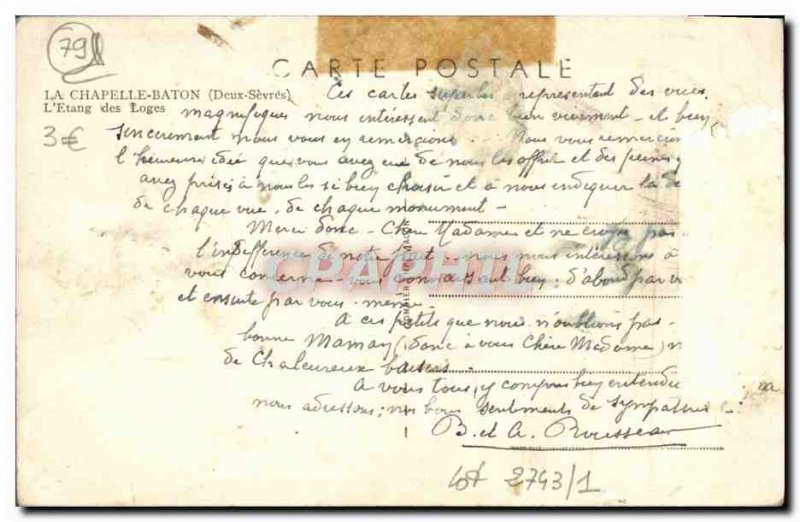 79
CARTE POSTALE
LA CHAPELLE-BATON (Deux-Sèvres)
L'Etang des Loges
3€
Ces cartes superbes représentant des vues
magnifiques nous intéressent donc bien vivement - et bien
sincerement nous vous en remercions. Nous vous remercions
l'heureuse idée que vous avez eue de nous les offrir et des peines
avez prises à nous les si bien choisir et à nous indiquer la
de chaque vue, de chaque monument -
Merci donc - Chère Madame et ne croyez pas
l'indifférence de notre part - nous nous intéressons à
vous concerne - vous connaissant bien; d'abord par
et ensuite par vous-même -
A ces petits que nous n'oublions pas -
bonne Maman (donc à vous Chère Madame)
de Chaleureux baisers.
A vous tous, y compris bien entendu
nous adressons; nos bons sentiments de sympathie
B. et A. Rousseau
CPAPHIL
lot 2743/1